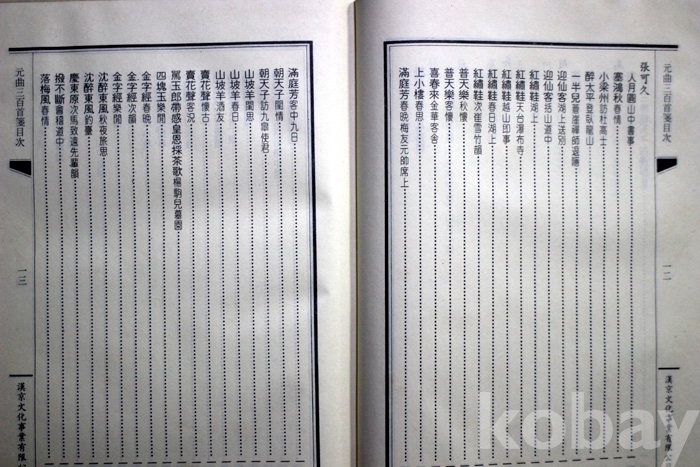 元曲三百首箋目次
一二
漢京文化事業有限公
張可久
人月圓山中書事
塞鴻秋春情
小梁州訪杜高士
醉太平登臥龍山
一半兒蒼崖禪師退隱
迎仙客湖上送別
迎仙客括山道中
紅繡鞋湖上
紅繡鞋天台瀑布寺
紅繡鞋越山即事
紅繡鞋春日湖上
紅繡鞋次崔雪竹韻
普天樂秋懷
普天樂客懷
喜春來金華客舍
上小樓春思
滿庭芳春晚梅友元帥席上
滿庭芳客中九日
朝天子閨情
朝天子訪九皐使君
山坡羊閨思
山坡羊春日
山坡羊酒友
賣花聲懷古
賣花聲客況
罵玉郎帶感皇恩採茶歌楊駒兒墓園
四塊玉樂閒
金字經春晚
金字經次韻
金字經樂閒
沈醉東風秋夜旅思
沈醉東風釣臺
慶東原次馬致遠先輩韻
撥不斷會稽道中
落梅風春情
元曲三百首箋目次
一三
漢京文化事業有限公
kobay